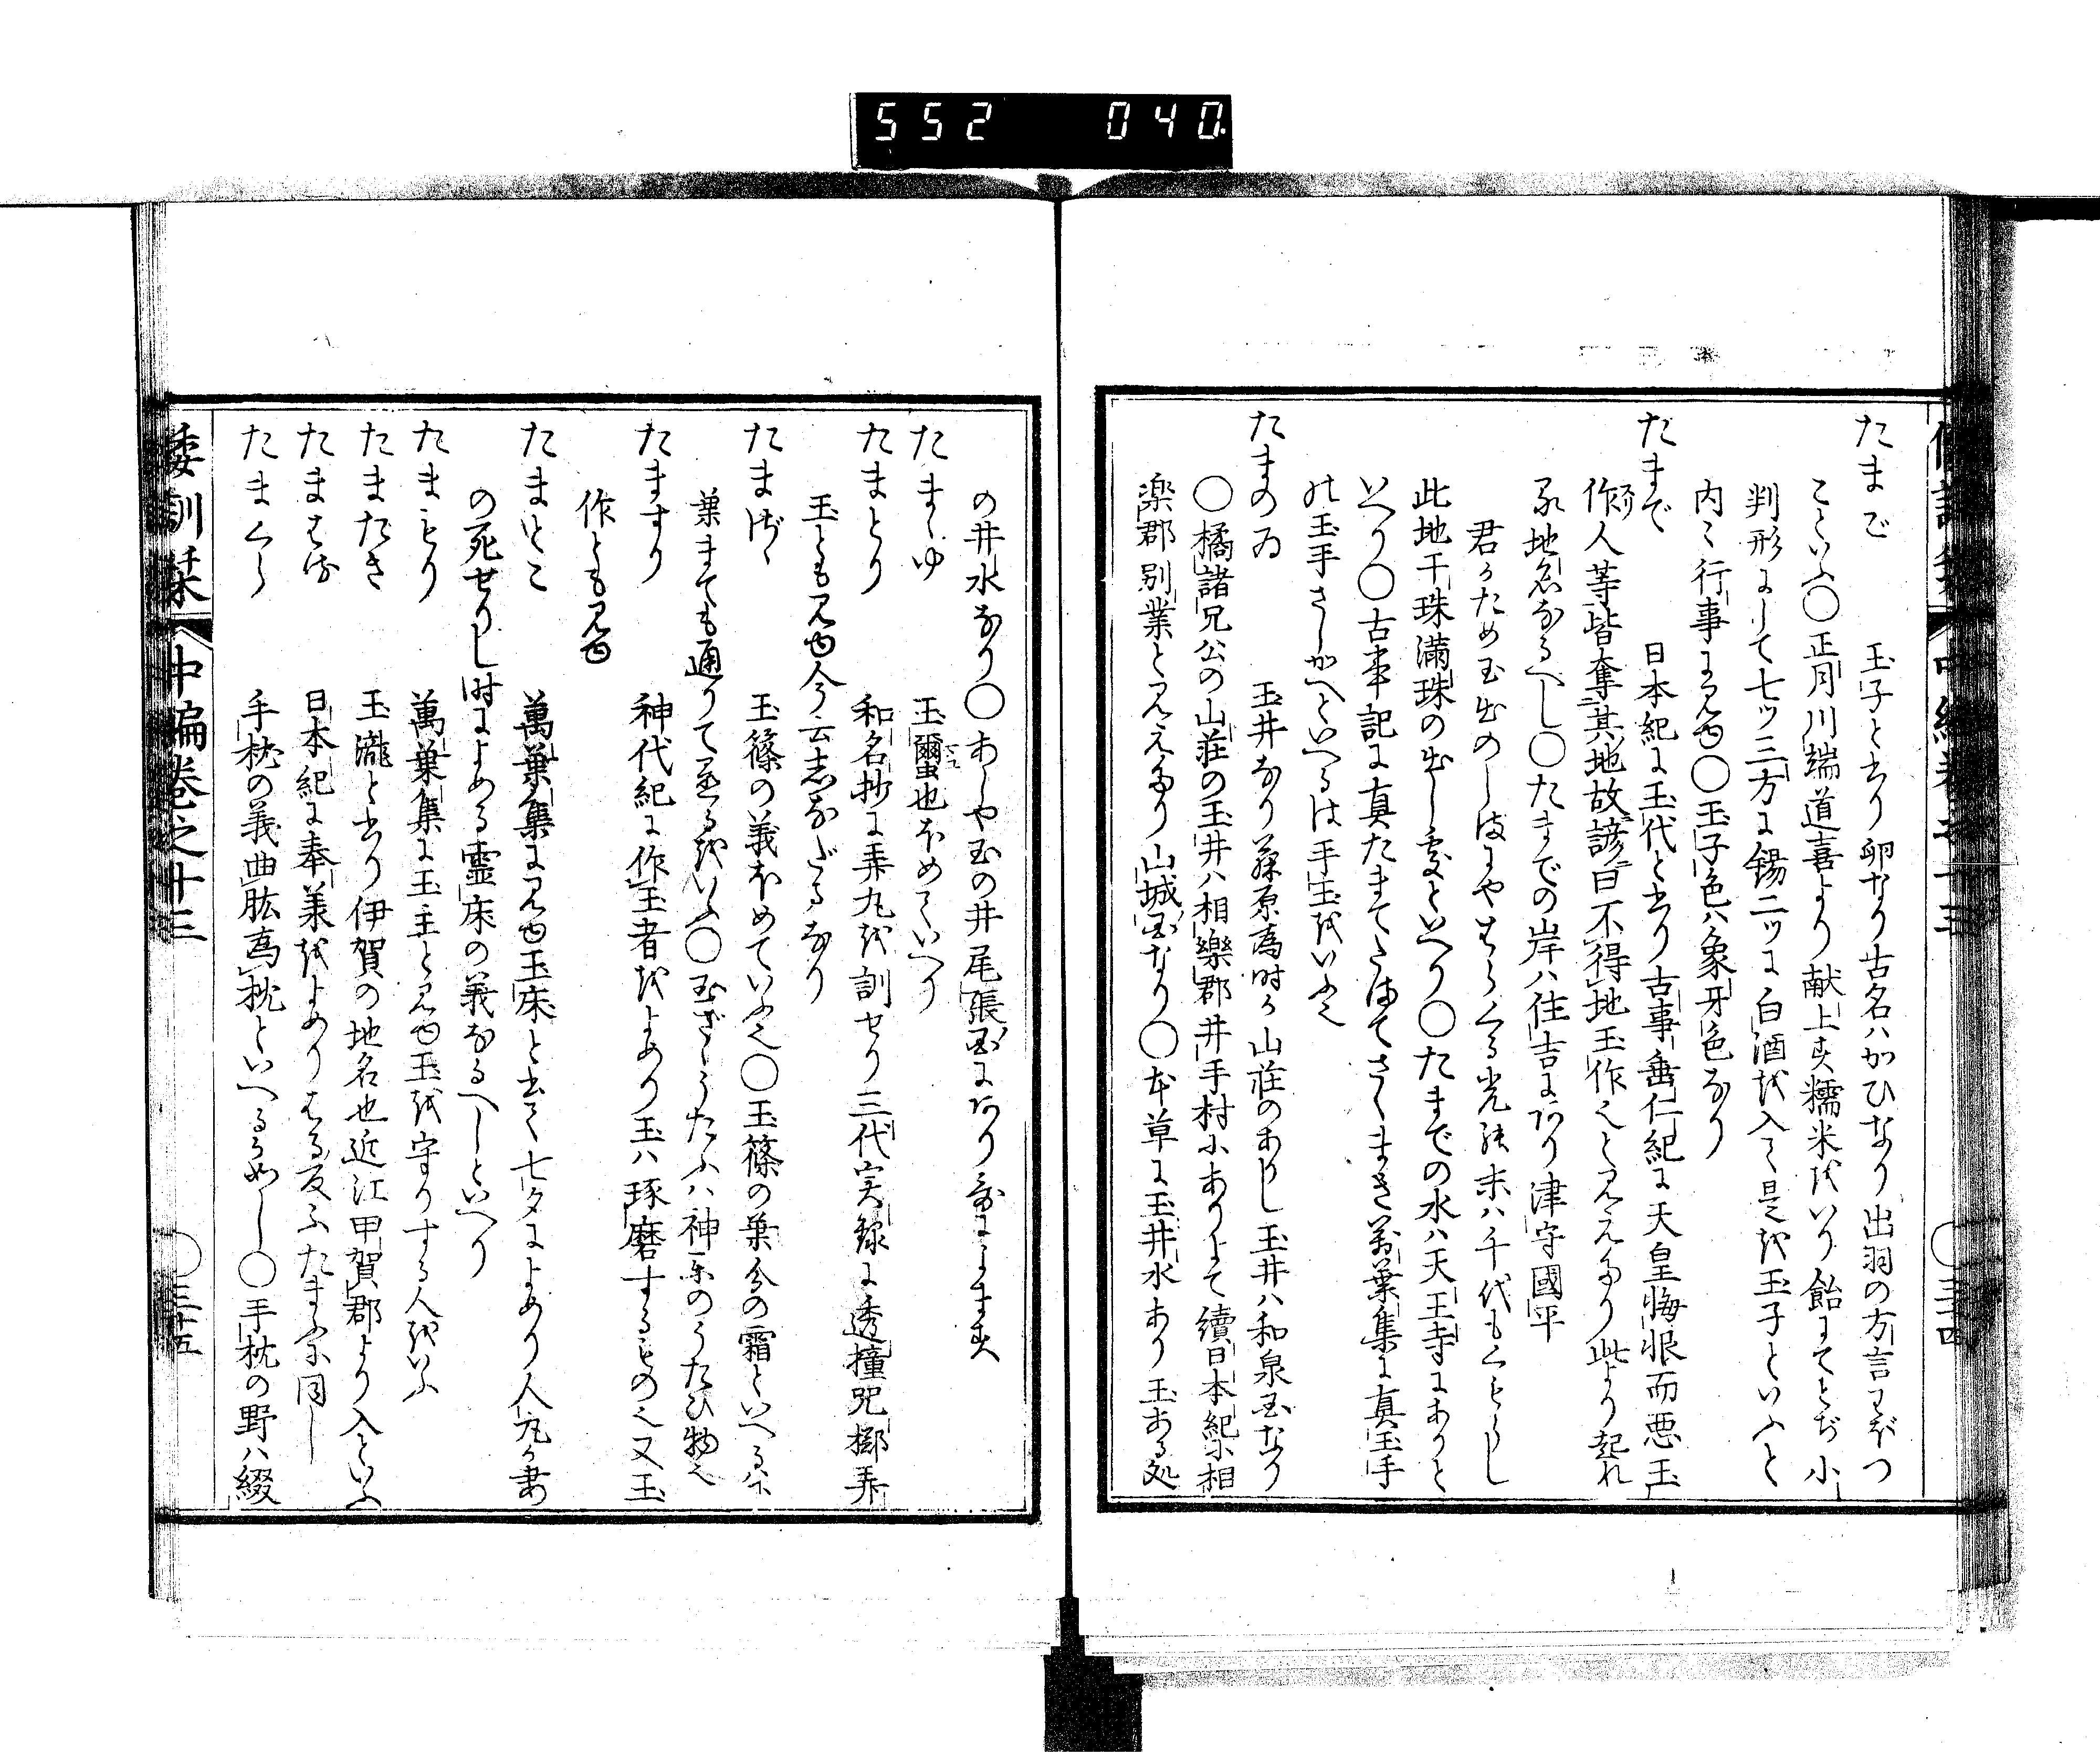 552 040
たまご 玉子と书り卵なり古名ハかひなり出羽の方言こがつ
こといふ○正月川端道喜より献上す糯米をいり飴にてとぢ小
判形にして七ツ三方に錫二ツに白酒を入る是を玉子といふと
内々行事に見ゆ○玉子色ハ象牙色なり
たまで 日本紀に玉代と书り古事垂仁紀に天皇悔恨而悪玉
作人等皆奪其地故諺曰不得地玉作也と见えたり此より起れ
る地名なるへし○たまでの岸ハ住吉にあり津守國平
君かため玉出のしほにやはらくる光の末ハ千代もくもらし
此地干珠満珠の出し処といへり○たまでの水ハ天王寺にありと
いへり○古事記に真たまてたまてさしまき萬葉集に真玉手
の玉手さしかへといへるは手玉をいふ也
たまのゐ 玉井なり藤原為時か山荘のありし玉井ハ和泉国なり
○橘諸兄公の山荘の玉井ハ相樂郡井手村にありよて續日本紀に相
楽郡別業と见えたり山城国なり○本草に玉井水あり玉ある処
の井水なり○あしや玉の井尾張国にあり歌によます
たまゆ 玉蠒也ほめていへり
たまとり 和名抄に弄丸を訓せり三代実録に透撞咒擲弄
玉とも见ゆ今云志なだまなり
たまざゝ 玉篠の義ほめていふ也○玉篠の葉分の霜といへるは
葉まても通りて置るをいふ○玉ざゝうたふハ神楽のうたひ物也
たますり 神代紀に作玉者をよめり玉ハ琢磨するもの也又玉
作とも见ゆ
たまどこ 萬葉集に见ゆ玉床と书く七夕によめり人丸か妻
の死せりし时によめる霊床の義なるへしといへり
たまもり 萬葉集に玉主と见ゆ玉を守りする人をいふ
たまたき 玉瀧と书り伊賀の地名也近江甲賀郡より入といふ
たまはる 日本紀に奉養をよめりはる反ふたまふに同し
たまくら 手枕の義曲肱為枕といへるか如し○手枕の野ハ綴
倭訓栞 中編巻之十三 ○三十五